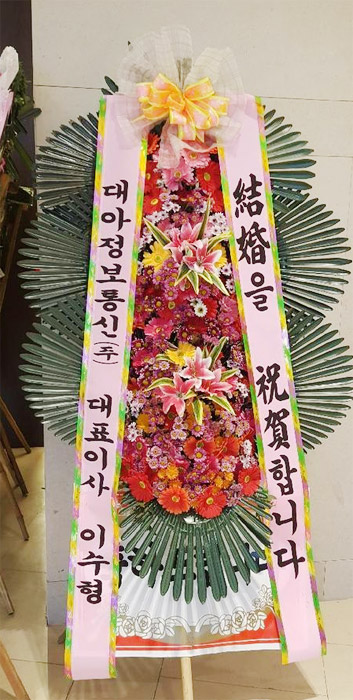 結婚을 祝賀합니다
대아정보통신(주) 대표이사 이수형